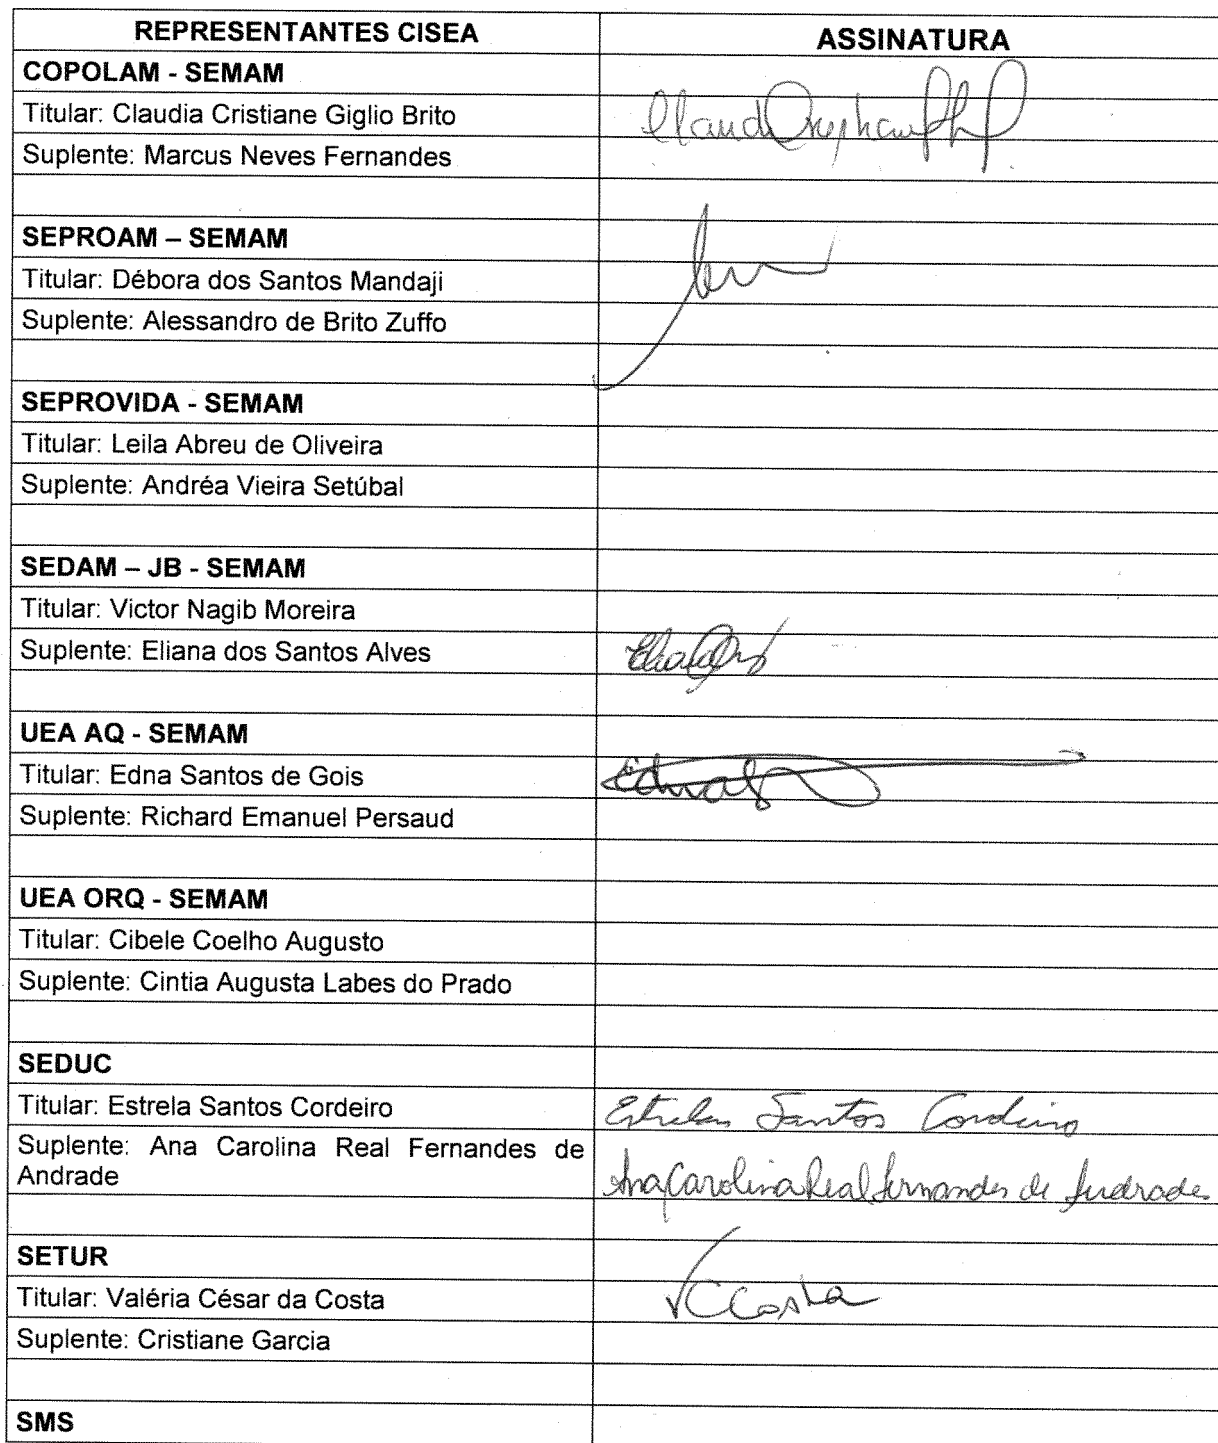 REPRESENTANTES CISEA ASSINATURA
COPOLAM - SEMAM
Titular: Claudia Cristiane Giglio Brito
Suplente: Marcus Neves Fernandes
SEPROAM – SEMAM
Titular: Débora dos Santos Mandaji
Suplente: Alessandro de Brito Zuffo
SEPROVIDA - SEMAM
Titular: Leila Abreu de Oliveira
Suplente: Andréa Vieira Setúbal
SEDAM – JB - SEMAM
Titular: Victor Nagib Moreira
Suplente: Eliana dos Santos Alves
UEA AQ - SEMAM
Titular: Edna Santos de Gois
Suplente: Richard Emanuel Persaud
UEA ORQ - SEMAM
Titular: Cibele Coelho Augusto
Suplente: Cintia Augusta Labes do Prado
SEDUC
Titular: Estrela Santos Cordeiro Estrela Santos Cordeiro
Suplente: Ana Carolina Real Fernandes de
Andrade Ana Carolina Real Fernandes de Andrade
SETUR
Titular: Valéria César da Costa VCCosta
Suplente: Cristiane Garcia
SMS